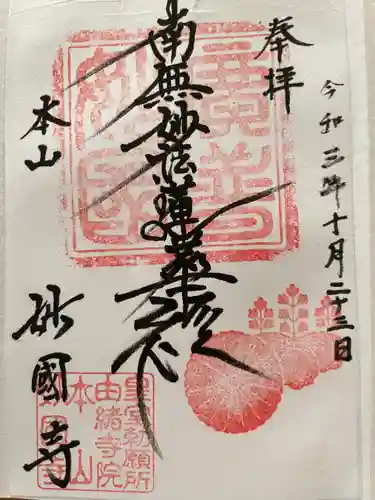 令和三年十月二十三日
奉拝
南無妙法蓮華経
本山
妙國寺
皇室勅願所
由緒寺院
本山
妙國寺